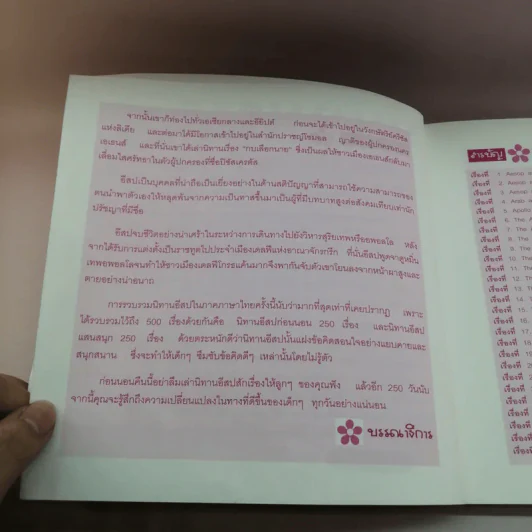 จากนั้นเขาก็ท่องไปทั่วเอเชียกลางและอียิปต์ ก่อนจะได้เข้าไปอยู่ในวังกษัตริย์ครีซัส
แห่งลิเดีย และต่อมาได้มีโอกาสเข้าไปอยู่ในสำนักปราชญ์โซลอน ญาติของผู้ปกครองนคร
เอเธนส์ และที่นั่นเขาได้เล่านิทานเรื่อง "กบเลือกนาย" ซึ่งเป็นผลให้ชาวเมืองเอเธนส์กลับมา
เลื่อมใสศรัทธาในตัวผู้ปกครองที่ชื่อปิซัสเตรตัส
อีสปเป็นบุคคลที่น่าถือเป็นเยี่ยงอย่างในด้านสติปัญญาที่สามารถใช้ความสามารถของ
ตนนำพาตัวเองให้หลุดพ้นจากความเป็นทาสขึ้นมาเป็นผู้ที่มีบทบาทสูงต่อสังคมเทียบเท่านัก
ปรัชญาที่มีชื่อ
อีสปจบชีวิตอย่างน่าเศร้าในระหว่างการเดินทางไปยังวิหารสุริยเทพหรืออพอลโล หลัง
จากได้รับการแต่งตั้งเป็นราชทูตไปประจำเมืองเดลฟีแห่งอาณาจักรกรีก ที่นั่นอีสปพูดจาดูหมิ่น
เทพอพอลโลจนทำให้ชาวเมืองเดลฟีโกรธแค้นมากจึงพากันจับตัวเขาโยนลงจากหน้าผาสูงและ
ตายอย่างน่าอนาถ
การรวบรวมนิทานอีสปในภาคภาษาไทยครั้งนี้นับว่ามากที่สุดเท่าที่เคยปรากฏ เพราะ
ได้รวบรวมไว้ถึง 500 เรื่องด้วยกันคือ นิทานอีสปก่อนนอน 250 เรื่อง และนิทานอีสป
แสนสนุก 250 เรื่อง ด้วยตระหนักดีว่านิทานอีสปนั้นแฝงข้อคิดสอนใจอย่างแยบคายและ
สนุกสนาน ซึ่งจะทำให้เด็กๆ ซึมซับข้อคิดดีๆ เหล่านั้นโดยไม่รู้ตัว
ก่อนนอนคืนนี้อย่าลืมเล่านิทานอีสปสักเรื่องให้ลูกๆ ของคุณฟัง แล้วอีก 250 วันนับ
จากนี้คุณจะรู้สึกถึงความเปลี่ยนแปลงในทางที่ดีขึ้นของเด็กๆ ทุกวันอย่างแน่นอน
บรรณาธิการ
สารบัญ
เรื่องที่ 1. Aesop
เรื่องที่ 2. Aesop
เรื่องที่ 3. Aesop
เรื่องที่ 4.
เรื่องที่ 5.
เรื่องที่ 6. The
เรื่องที่ 7. The
เรื่องที่ 8. The
เรื่องที่ 9. The
เรื่องที่ 10. The
เรื่องที่ 11. Th
เรื่องที่ 12. Th
เรื่องที่ 13. T
เรื่องที่ 14.
เรื่องที่ 15.
เรื่องที่ 16.
เรื่องที่ 17.
เรื่องที่ 18.
เรื่องที่ 19.
เรื่องที่
เรื่องที่
เรื่องที่
เรื่องที่
เรื่องที่
เรื่องที่
เรื่องที่
เรื่องที่